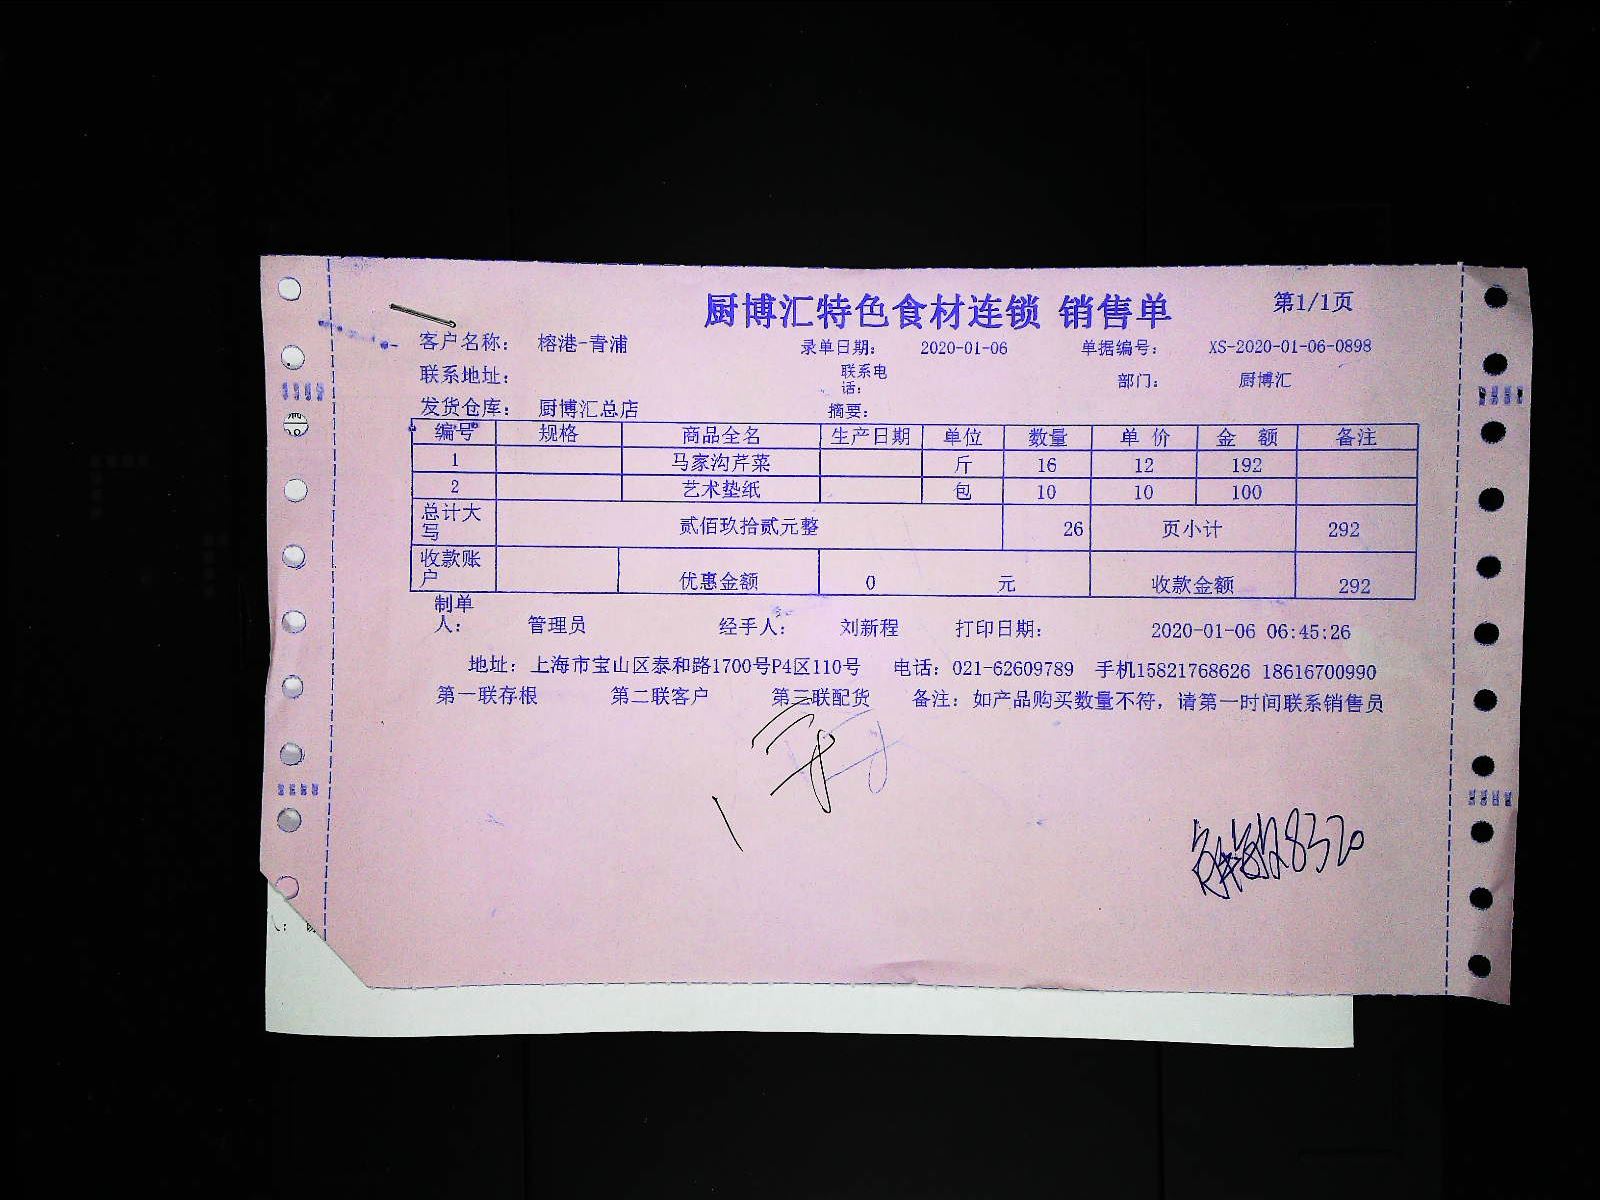 厨博汇特色食材连锁 销售单 第1/1页
客户名称： 榕港-青浦 录单日期： 2020-01-06 单据编号： XS-2020-01-06-0898
联系地址： 联系电话： 部门： 厨博汇
发货仓库： 厨博汇总店 摘要：
编号 规格 商品全名 生产日期 单位 数量 单价 金额 备注
1 马家沟芹菜 斤 16 12 192
2 艺术垫纸 包 10 10 100
总计大写 贰佰玖拾贰元整 26 页小计 292
收款账户 优惠金额 0 元 收款金额 292
制单人： 管理员 经手人： 刘新程 打印日期： 2020-01-06 06:45:26
地址：上海市宝山区泰和路1700号P4区110号 电话：021-62609789 手机15821768626 18616700990
第一联存根 第二联客户 第三联配货 备注：如产品购买数量不符，请第一时间联系销售员